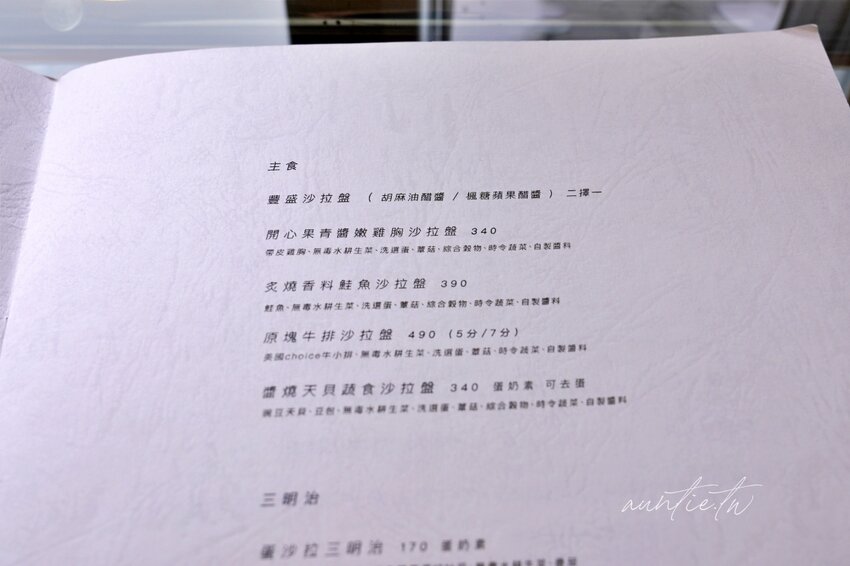 主食
豐盛沙拉盤 （ 胡麻油醋醬 / 楓糖蘋果醋醬 ） 二擇一
開心果青醬嫩雞胸沙拉盤 340
帶皮雞胸、無毒水耕生菜、洗選蛋、蕈菇、綜合穀物、時令蔬菜、自製醬料
炙燒香料鮭魚沙拉盤 390
鮭魚、無毒水耕生菜、洗選蛋、蕈菇、綜合穀物、時令蔬菜、自製醬料
原塊牛排沙拉盤 490 (5分/7分)
美國choice牛小排、無毒水耕生菜、洗選蛋、蕈菇、時令蔬菜、自製醬料
醬燒天貝蔬食沙拉盤 340 蛋奶素 可去蛋
豌豆天貝、豆包、無毒水耕生菜、洗選蛋、蕈菇、綜合穀物、時令蔬菜、自製醬料
三明治
蛋沙拉三明治 170 蛋奶素
auntie.tw